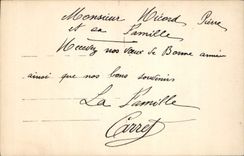 Monsieur Nicord Pierre
et sa Famille
nos Vœux de Bonne année
ainsi que nos bons soutenirs
La Famille
Carret